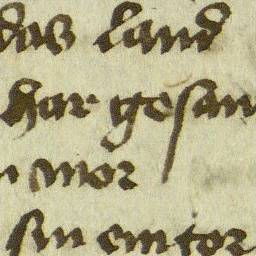 das land
har gesan
n mor
sin ein tor